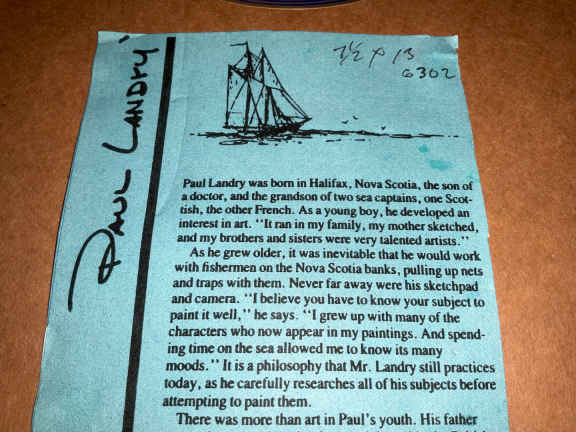 PAUL LANDRY
7½ x 13
6302
Paul Landry was born in Halifax, Nova Scotia, the son of
a doctor, and the grandson of two sea captains, one Scot-
tish, the other French. As a young boy, he developed an
interest in art. "It ran in my family, my mother sketched,
and my brothers and sisters were very talented artists."
As he grew older, it was inevitable that he would work
with fishermen on the Nova Scotia banks, pulling up nets
and traps with them. Never far away were his sketchpad
and camera. "I believe you have to know your subject to
paint it well," he says. "I grew up with many of the
characters who now appear in my paintings. And spend-
ing time on the sea allowed me to know its many
moods." It is a philosophy that Mr. Landry still practices
today, as he carefully researches all of his subjects before
attempting to paint them.
There was more than art in Paul's youth. His father